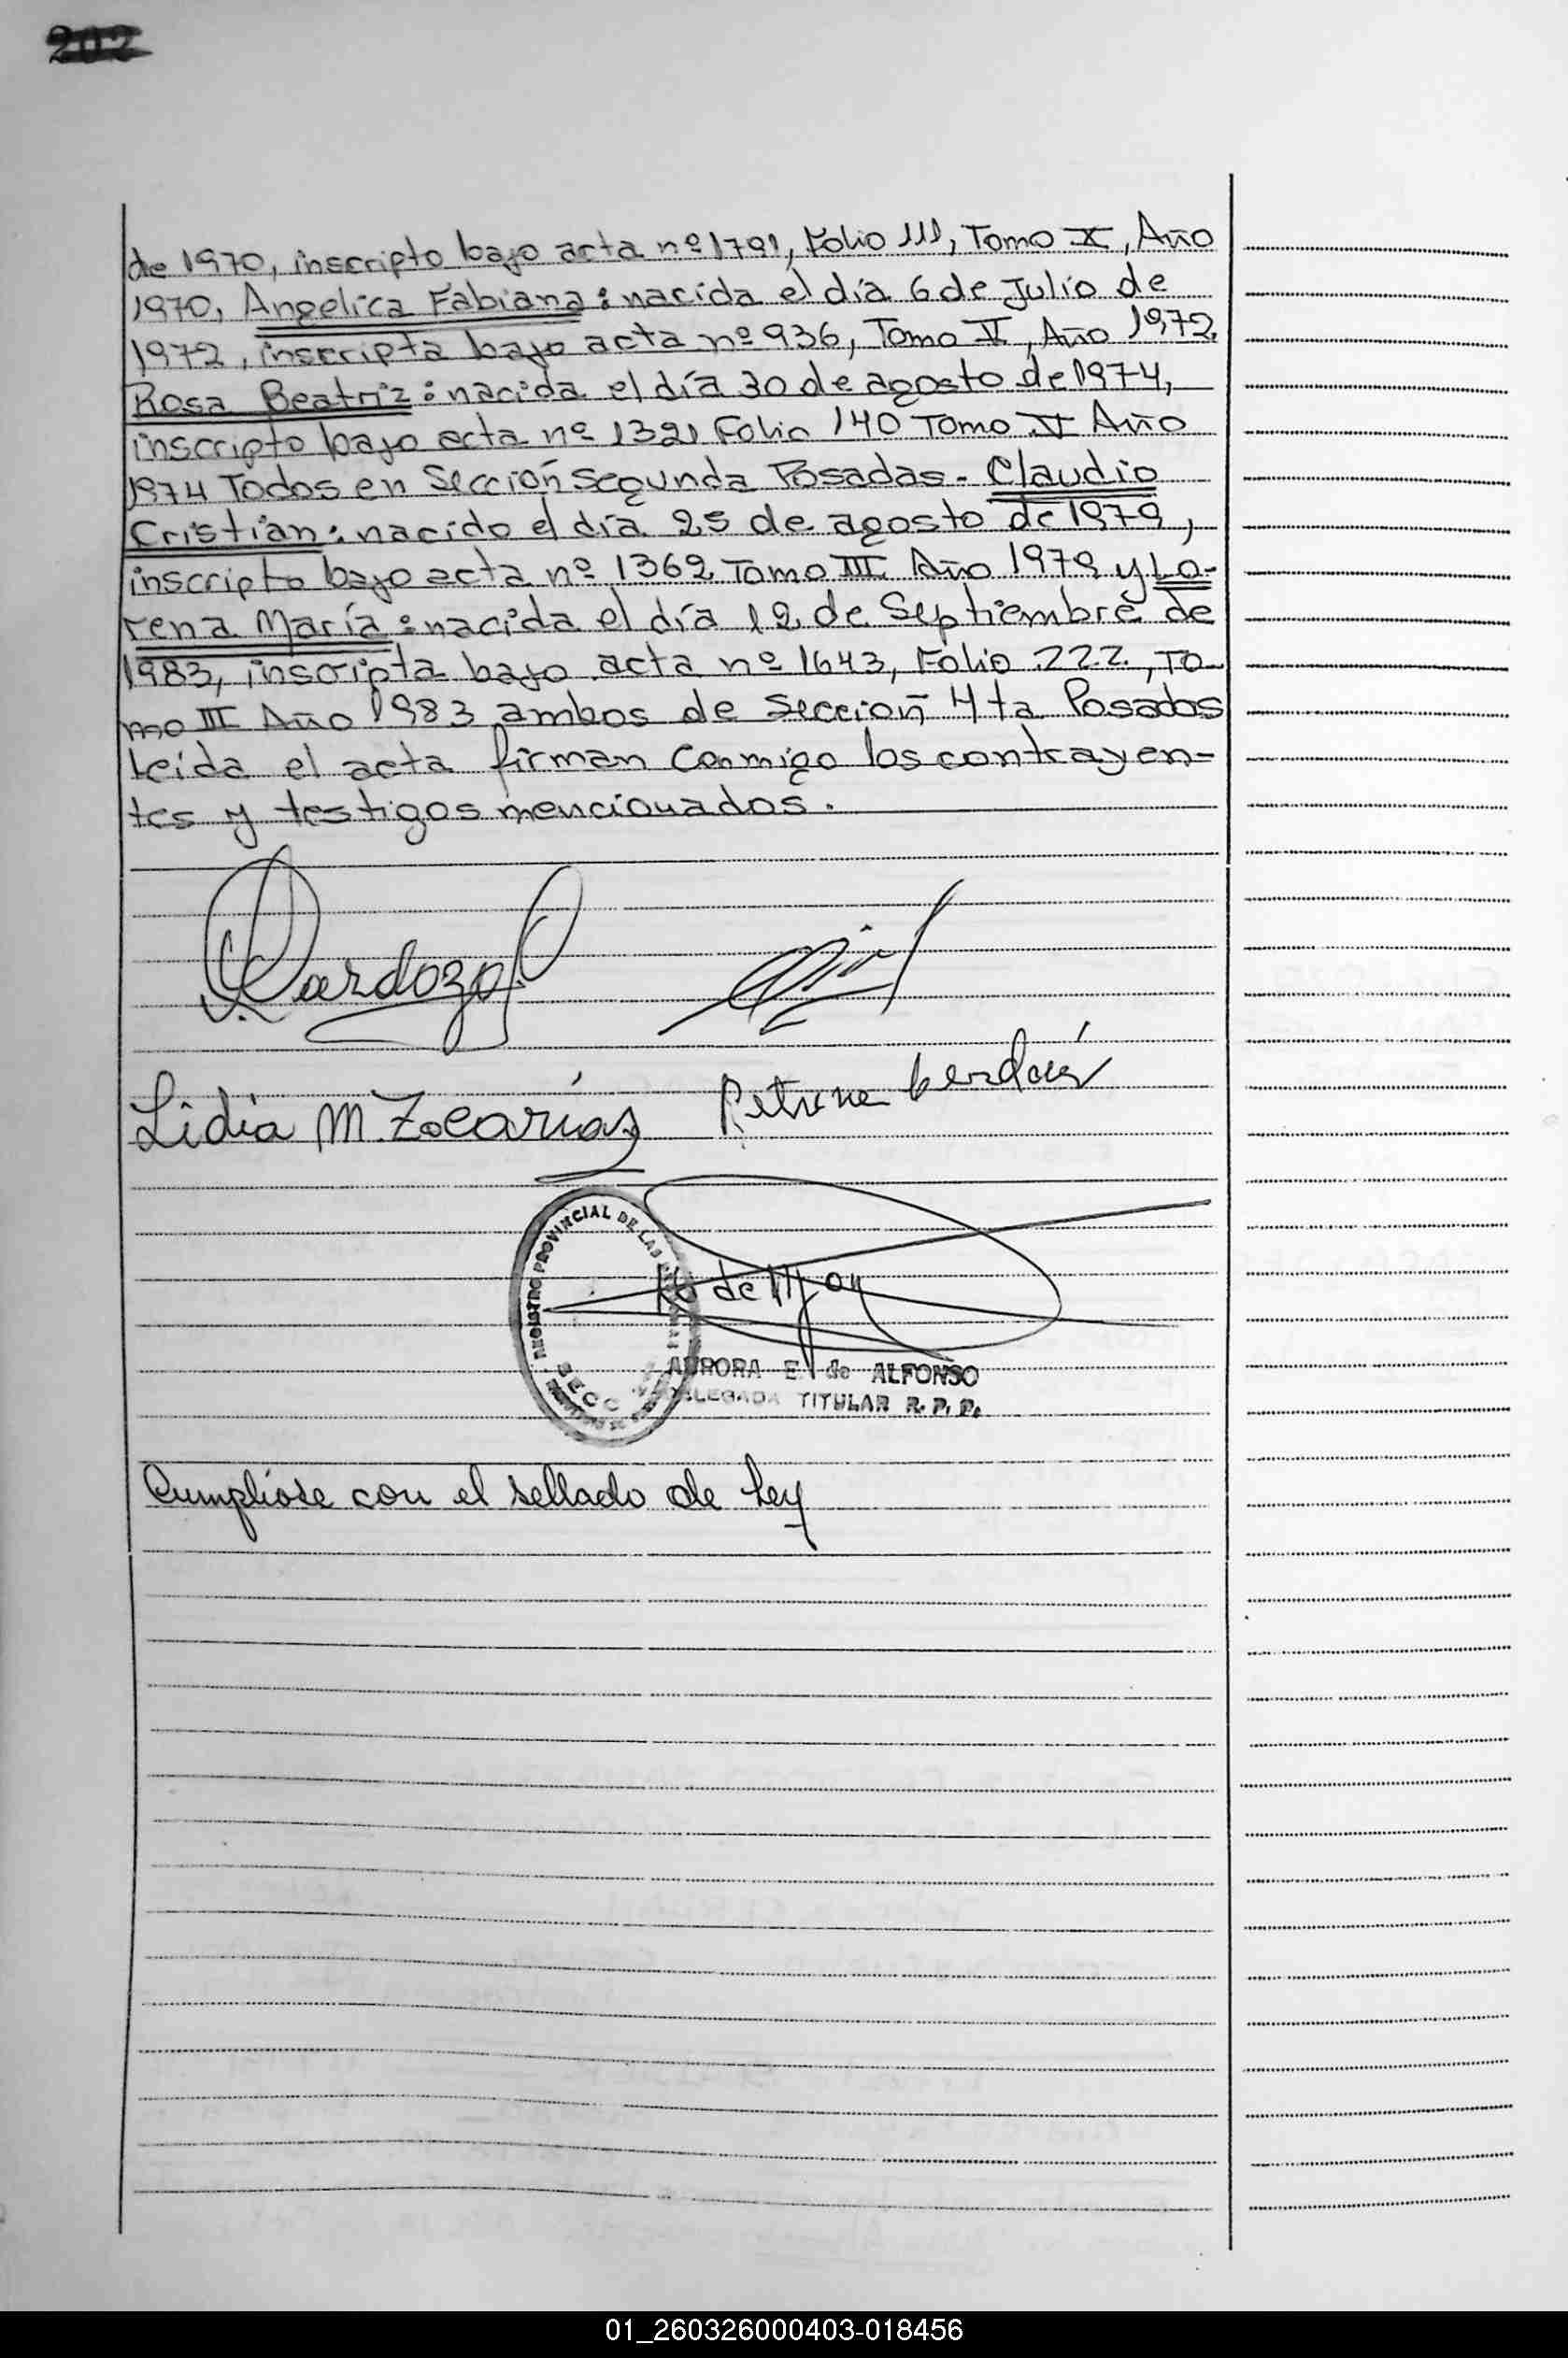 202
de 1970, inscripto bajo acta nº 1791, Folio 111, Tomo X, Año
1970, Angelica Fabiana: nacida el día 6 de Julio de
1972, inscripta bajo acta nº 936, Tomo V, Año 1972.
Rosa Beatriz: nacida el día 30 de agosto de 1974,
inscripto bajo acta nº 1321 Folio 140 Tomo V Año
1974 Todos en Sección segunda Posadas. Claudio
Cristian: nacido el día 25 de agosto de 1979,
inscripto bajo acta nº 1362 Tomo III Año 1979 y Lo-
rena María: nacida el día 12 de Septiembre de
1983, inscripta bajo acta nº 1643, Folio 222, To-
mo III Año 1983 ambos de Sección 4ta Posadas
Leída el acta firman conmigo los contrayen-
tes y testigos mencionados.
Cardozo
Lidia M. Zacarías
REGISTRO PROVINCIAL DE LAS
SECC
AURORA E. de ALFONSO
DELEGADA TITULAR R. P. P.
Cumplióse con el sellado de Ley
01_260326000403-018456